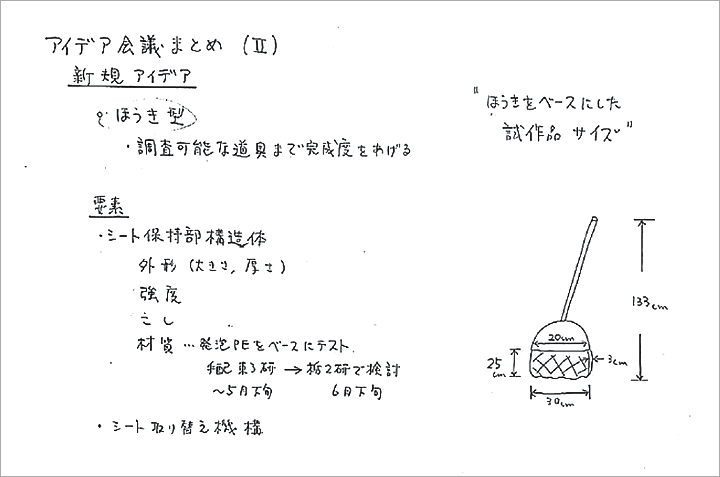 アイデア会議まとめ (Ⅱ)
新規アイデア
ほうき型
・調査可能な道具まで完成度をあげる
"ほうきをベースにした
試作品サイズ"
要素
・シート保持部構造体
外形 (大きさ, 厚さ)
強度
こし
材質 … 発泡PEをベースにテスト
手配 東3研 → 栃2研で検討
～5月下旬 6月下旬
・シート取り替え機構
133cm
20cm
25cm
3cm
30cm